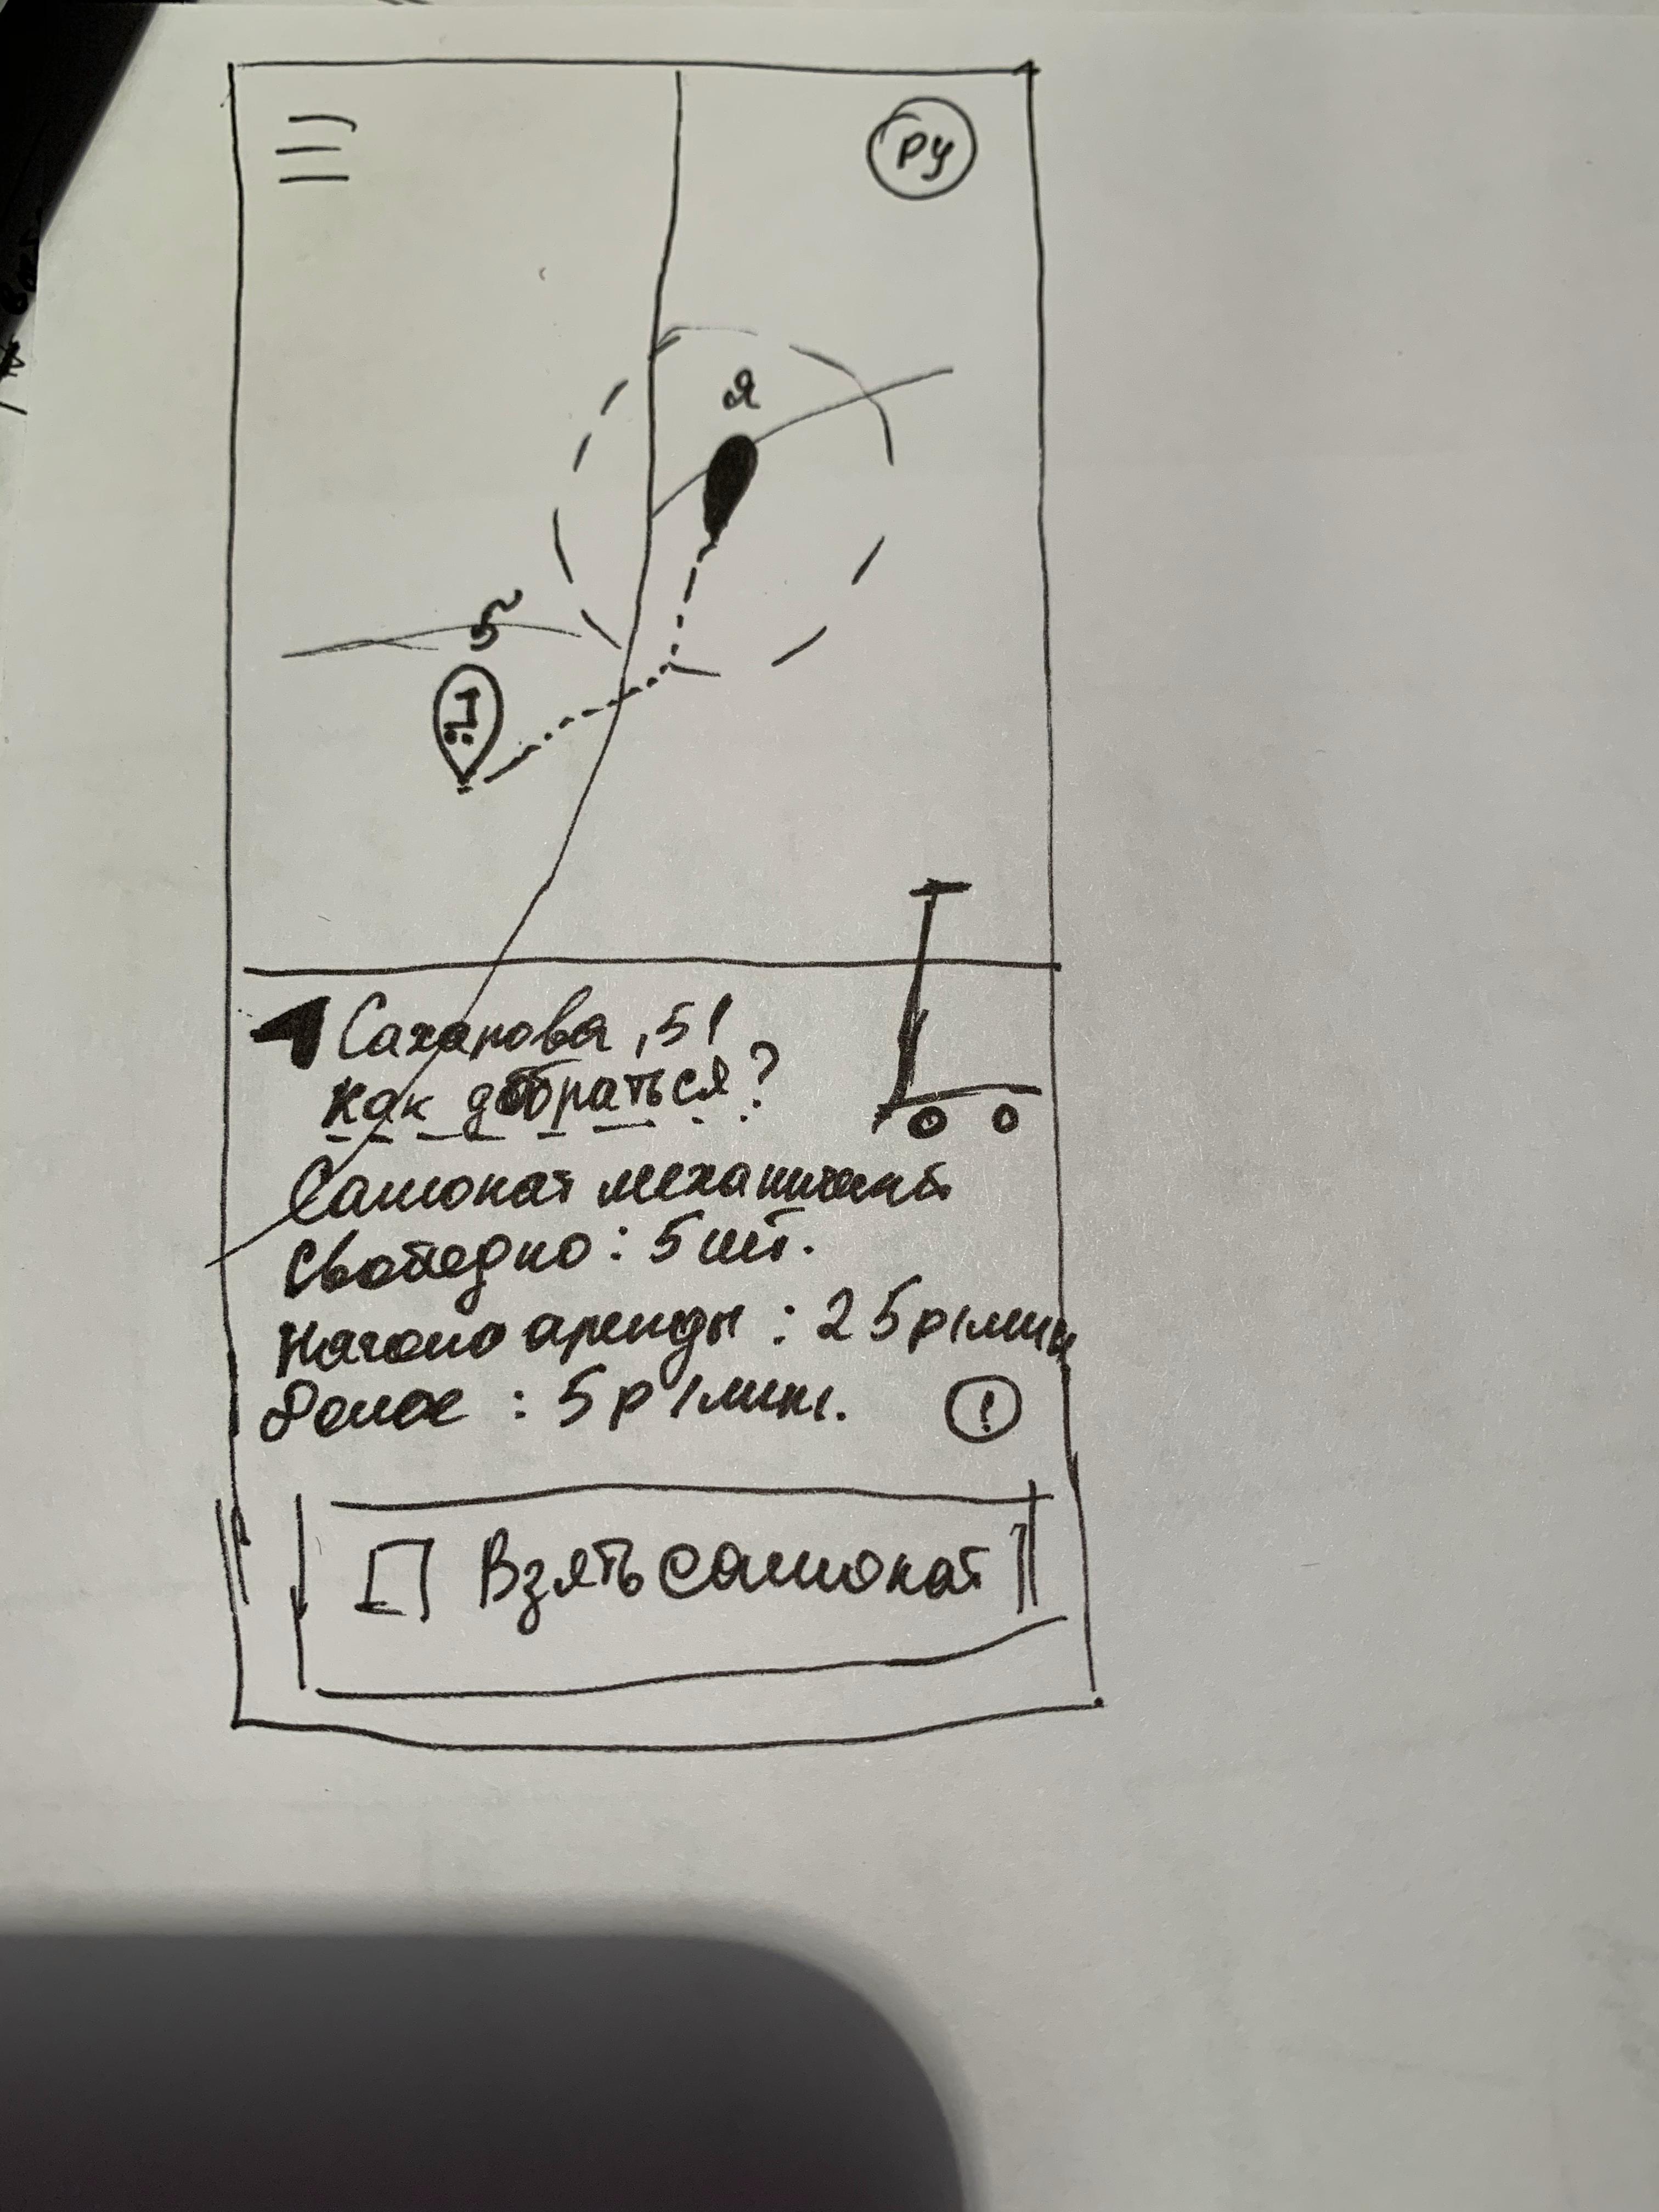 РУ
я
5
Сахарова, 51
как добраться?
Самокат механический
Свободно: 5 шт.
Начало аренды: 25 р/мин
Далее: 5 р/мин.
!
Взять самокат